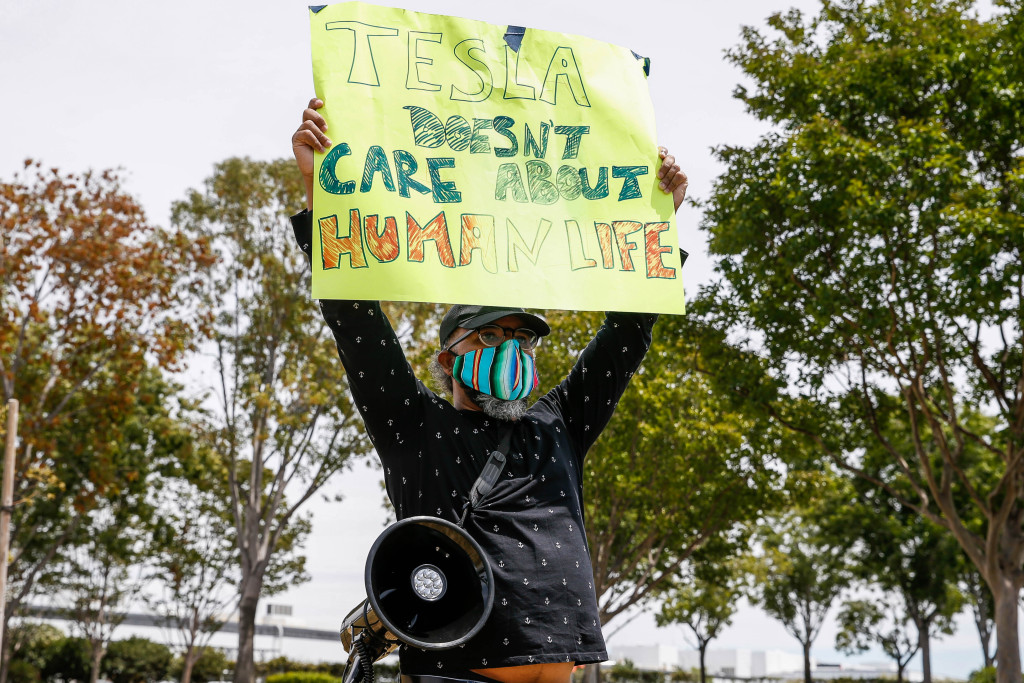 TESLA
DOESN'T
CARE ABOUT
HUMAN LIFE